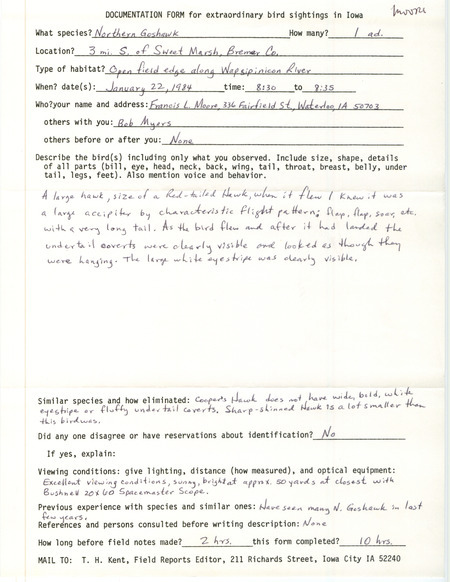 Moore
DOCUMENTATION FORM for extraordinary bird sightings in Iowa
What species? Northern Goshawk How many? 1 ad.
Location? 3 mi. S. of Sweet Marsh, Bremer Co.
Type of habitat? Open field edge along Wapsipinicon River
When? date(s): January 22, 1984 time: 8:30 to 8:35
Who? your name and address: Francis L. Moore, 336 Fairfield St., Waterloo, IA 50703
others with you: Bob Myers
others before or after you: None
Describe the bird(s) including only what you observed. Include size, shape, details
of all parts (bill, eye, head, neck, back, wing, tail, throat, breast, belly, under
tail, legs, feet). Also mention voice and behavior.
A large hawk, size of a Red-tailed Hawk, when it flew I knew it was
a large accipiter by characteristic flight pattern; flap, flap, soar, etc.
with a very long tail. As the bird flew and after it had landed the
undertail coverts were clearly visible and looked as though they
were hanging. The large white eyestripe was clearly visible.
Similar species and how eliminated: Coopers Hawk does not have wide, bold, white
eyestripe or fluffy undertail coverts. Sharp-shinned Hawk is a lot smaller than
this bird was.
Did any one disagree or have reservations about identification? No
If yes, explain:
Viewing conditions: give lighting, distance (how measured), and optical equipment:
Excellent viewing conditions, sunny, bright at approx. 50 yards at closest with
Bushnell 20x60 Spacemaster Scope.
Previous experience with species and similar ones: Have seen many N. Goshawk in last
few years.
References and persons consulted before writing description: None
How long before field notes made? 2 hrs. this form completed? 10 hrs.
MAIL TO: T. H. Kent, Field Reports Editor, 211 Richards Street, Iowa City IA 52240